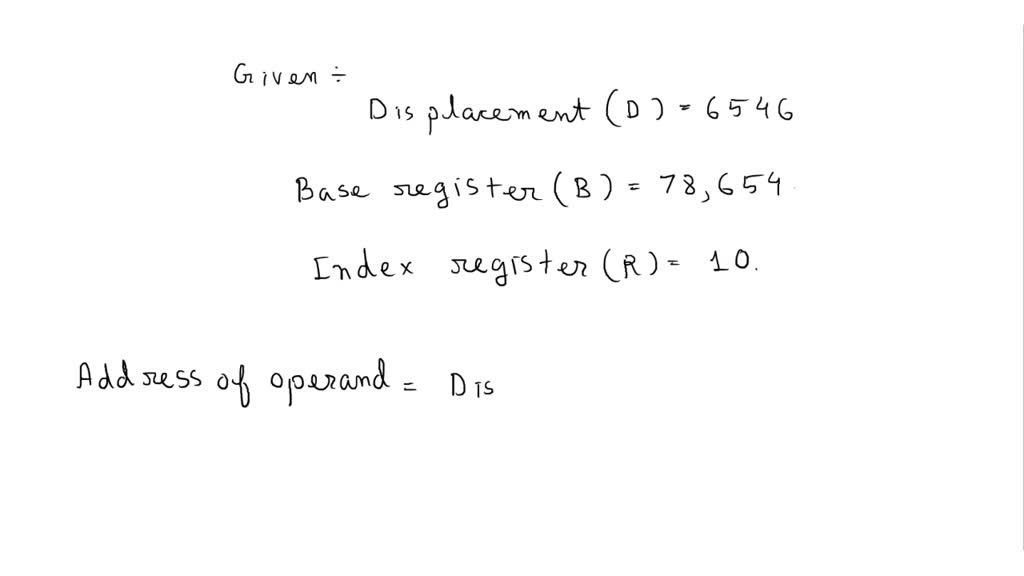 Given ÷
Displacement (D) = 6546
Base register (B) = 78,654
Index register (R) = 10.
Address of operand = Dis